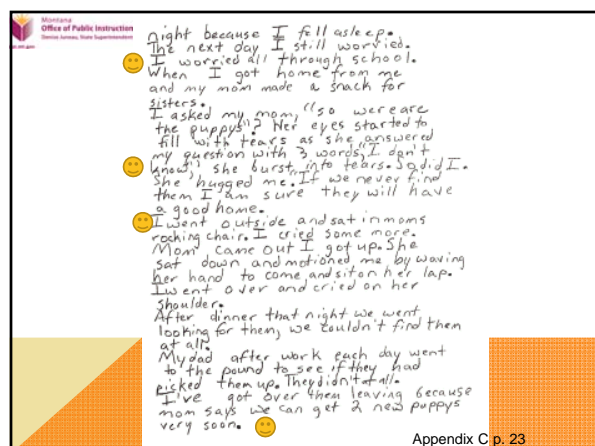 Montana
Office of Public Instruction
Denise Juneau, State Superintendent
opi.mt.gov
night because I fell asleep.
The next day I still worried.
I worried all through school.
When I got home from me
and my mom made a snack for
sisters.
I asked my mom, "so were are
the puppys"? Her eyes started to
fill with tears as she answered
my question with 3 words, "I don't
know," she burst into tears. So did I.
She hugged me. "If we never find
them I am sure they will have
a good home.
I went outside and sat in moms
rocking chair. I cried some more.
Mom came out I got up. She
sat down and motioned me by waving
her hand to come and sit on her lap.
I went over and cried on her
shoulder.
After dinner that night we went
looking for them, we couldn't find them
at all.
My dad after work each day went
to the pound to see if they had
picked them up. They didn't at all.
I've got over them leaving because
mom says we can get 2 new puppys
very soon.
Appendix C p. 23